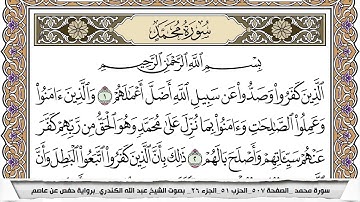 سورة محمد
بِسْمِ اللَّهِ الرَّحْمَٰنِ الرَّحِيمِ
الَّذِينَ كَفَرُوا وَصَدُّوا عَن سَبِيلِ اللَّهِ أَضَلَّ أَعْمَٰلَهُمْ ۝١ وَالَّذِينَ ءَامَنُوا
وَعَمِلُوا الصَّٰلِحَٰتِ وَءَامَنُوا بِمَا نُزِّلَ عَلَىٰ مُحَمَّدٍ وَهُوَ الْحَقُّ مِن رَّبِّهِمْ كَفَّرَ
عَنْهُمْ سَيِّـَٔاتِهِمْ وَأَصْلَحَ بَالَهُمْ ۝٢ ذَٰلِكَ بِأَنَّ الَّذِينَ كَفَرُوا اتَّبَعُوا الْبَٰطِلَ وَأَنَّ
سورة محمد _الصفحة ٥٠٧_الحزب ٥١_الجزء ٢٦_ بصوت الشيخ عبد الله الكندري _برواية حفص عن عاصم